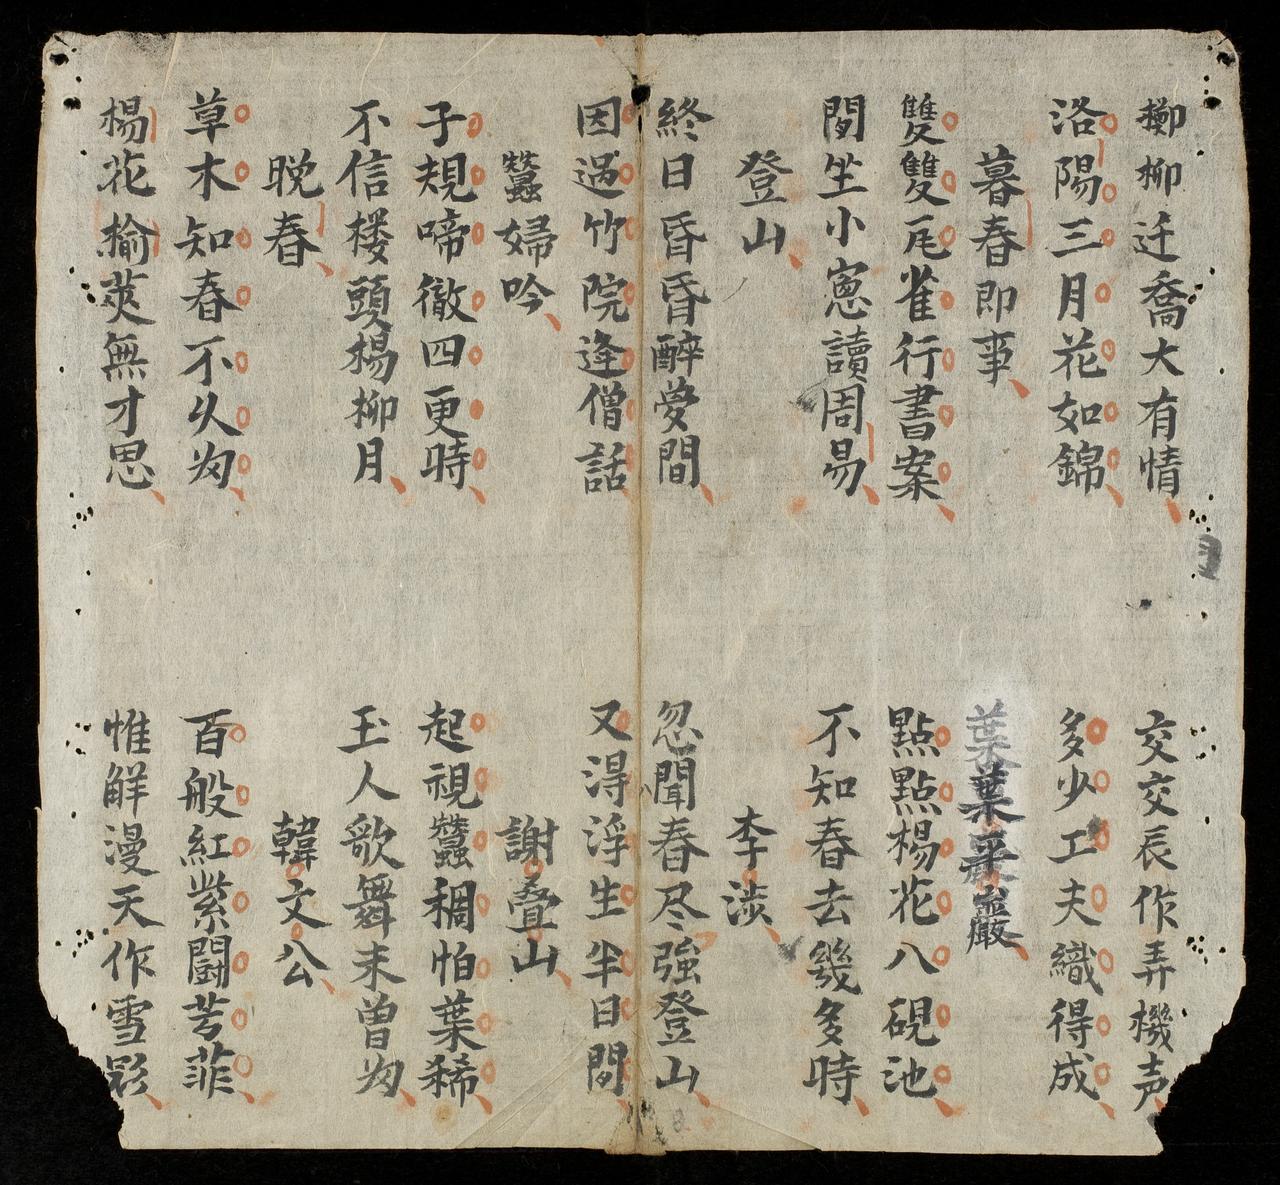 擲柳迁喬大有情
交交辰作弄機声
洛陽三月花如錦
多少工夫織得成
暮春即事
葉葉采巖
雙雙瓦雀行書案
點點楊花八硯池
閒坐小窓讀周易
不知春去幾多時
登山
李涉
終日昏昏醉夢間
忽聞春尽強登山
因過竹院逢僧話
又淂浮生半日閒
蠶婦吟
謝疊山
子規啼徹四更時
起視蠶稠怕葉稀
不信楼頭楊柳月
玉人歌舞未曽
晚春
韓文公
草木知春不久
百般紅紫闘芳菲
楊花榆莢無才思
惟觧漫天作雪